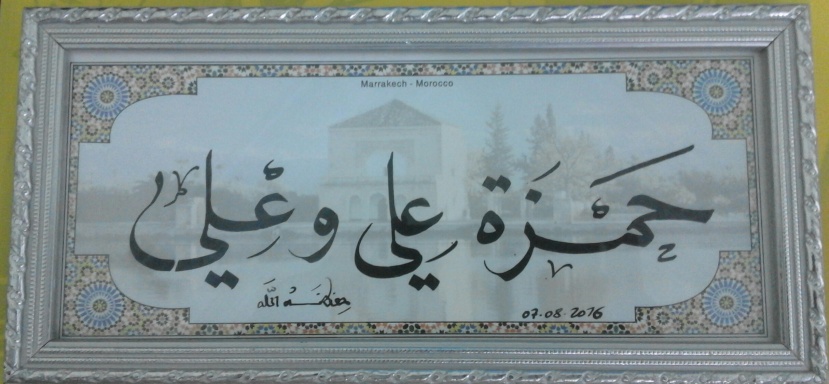 Marrakech - Morocco
حمزة علي وعلي
حفظه الله
07.08.2016